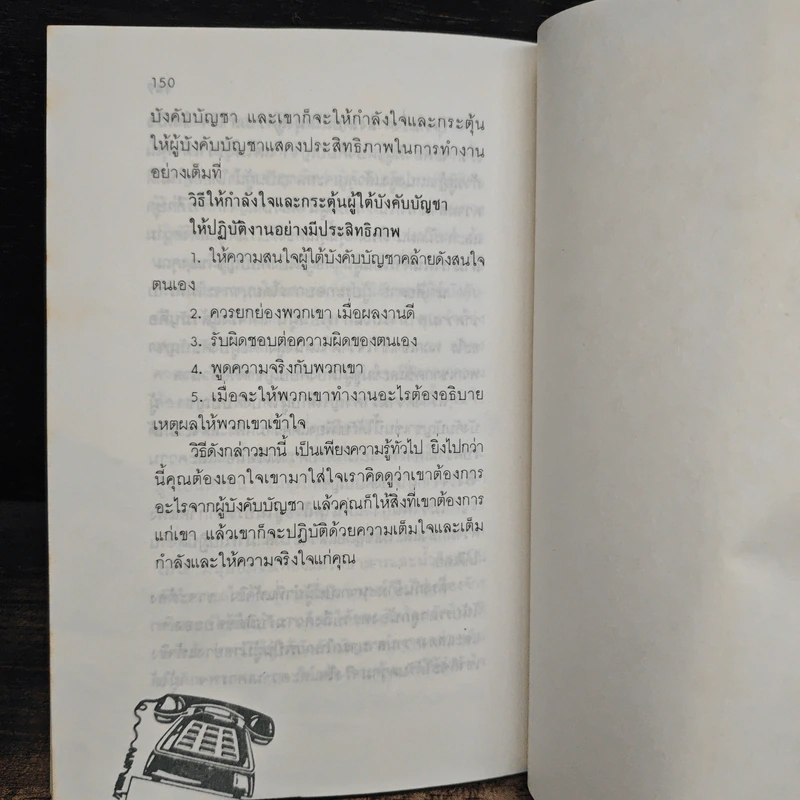 150
บังคับบัญชา และเขาก็จะให้กำลังใจและกระตุ้น
ให้ผู้บังคับบัญชาแสดงประสิทธิภาพในการทำงาน
อย่างเต็มที่
วิธีให้กำลังใจและกระตุ้นผู้ใต้บังคับบัญชา
ให้ปฏิบัติงานอย่างมีประสิทธิภาพ
1. ให้ความสนใจผู้ใต้บังคับบัญชาคล้ายดังสนใจ
ตนเอง
2. ควรยกย่องพวกเขา เมื่อผลงานดี
3. รับผิดชอบต่อความผิดของตนเอง
4. พูดความจริงกับพวกเขา
5. เมื่อจะให้พวกเขาทำงานอะไรต้องอธิบาย
เหตุผลให้พวกเขาเข้าใจ
วิธีดังกล่าวมานี้ เป็นเพียงความรู้ทั่วไป ยิ่งไปกว่า
นี้คุณต้องเอาใจเขามาใส่ใจเราคิดดูว่าเขาต้องการ
อะไรจากผู้บังคับบัญชา แล้วคุณก็ให้สิ่งที่เขาต้องการ
แก่เขา แล้วเขาก็จะปฏิบัติด้วยความเต็มใจและเต็ม
กำลังและให้ความจริงใจแก่คุณ